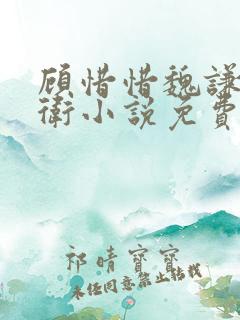 顾惜惜魏謙
衛小説免費
祁晴寶寶
未经同意禁止转载